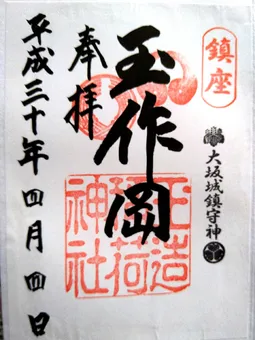 鎮座
大坂城鎮守神
玉作岡
玉造稲荷神社
奉拝
平成三十年四月四日